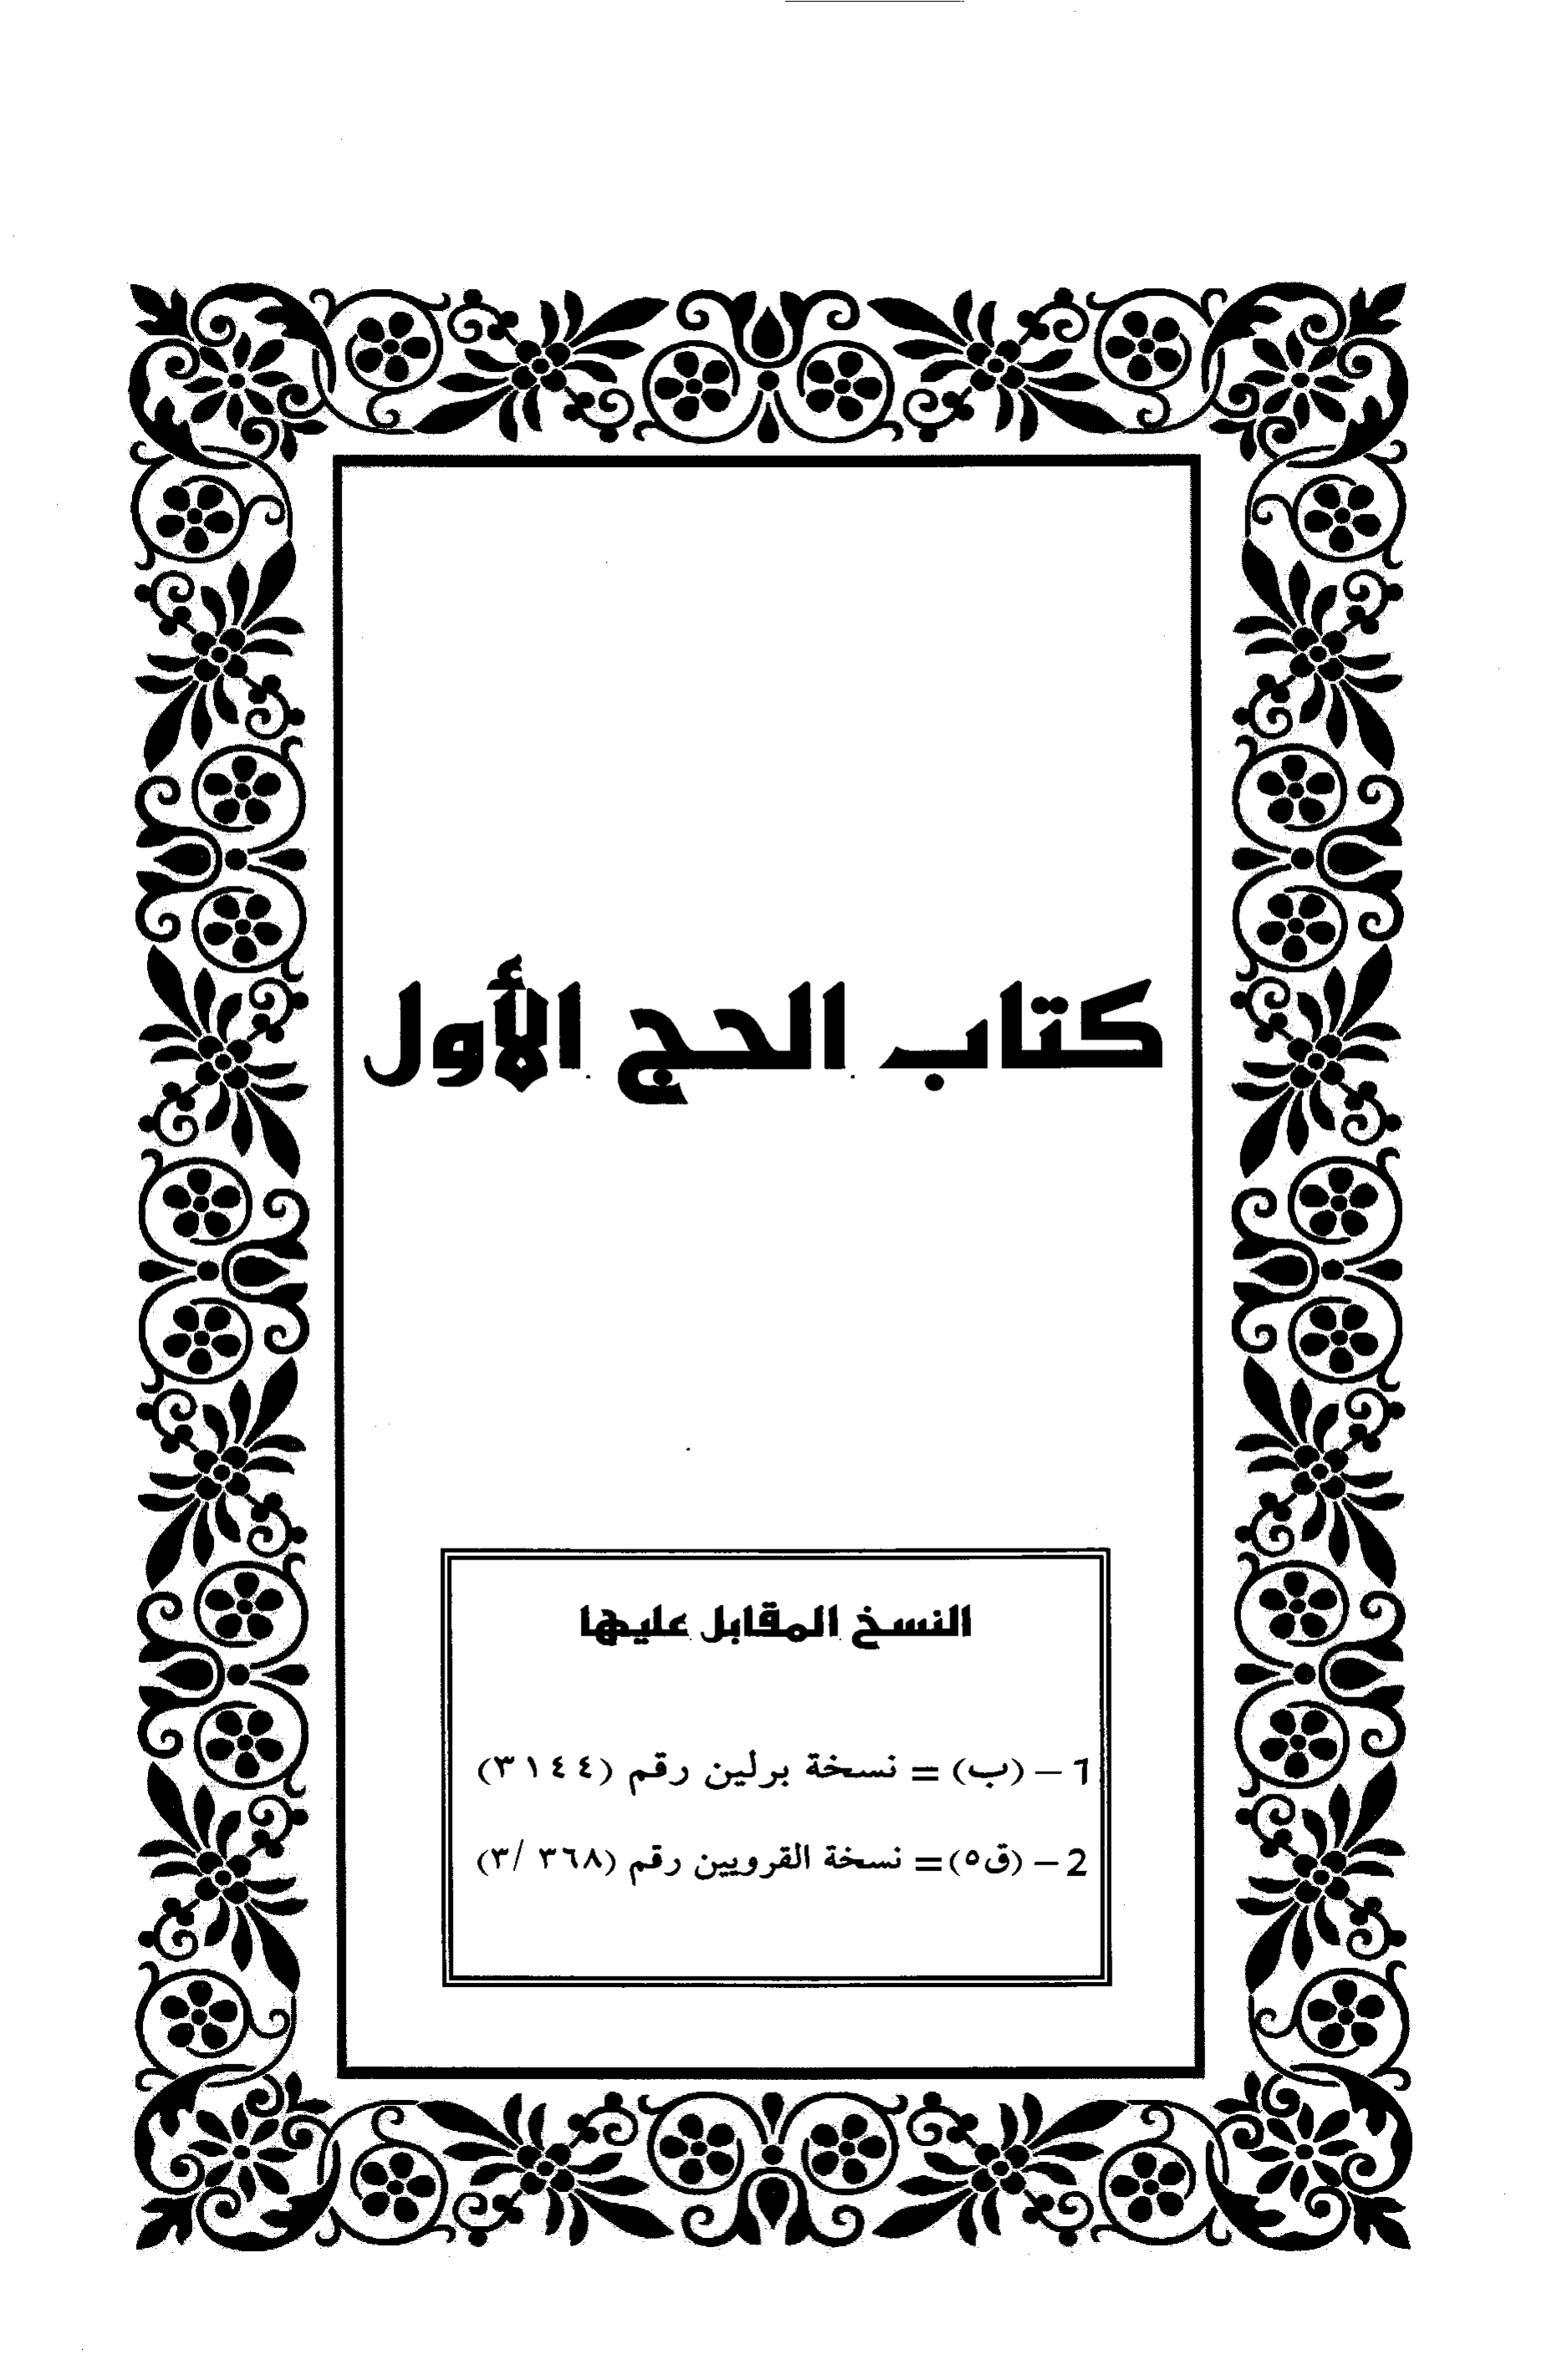 كتاب الحج الأول
النسخ المقابل عليها
1 – (ب) = نسخة برلين رقم (٣١٤٤)
2 – (ق٥)= نسخة القرويين رقم (٣٦٨ /٣)